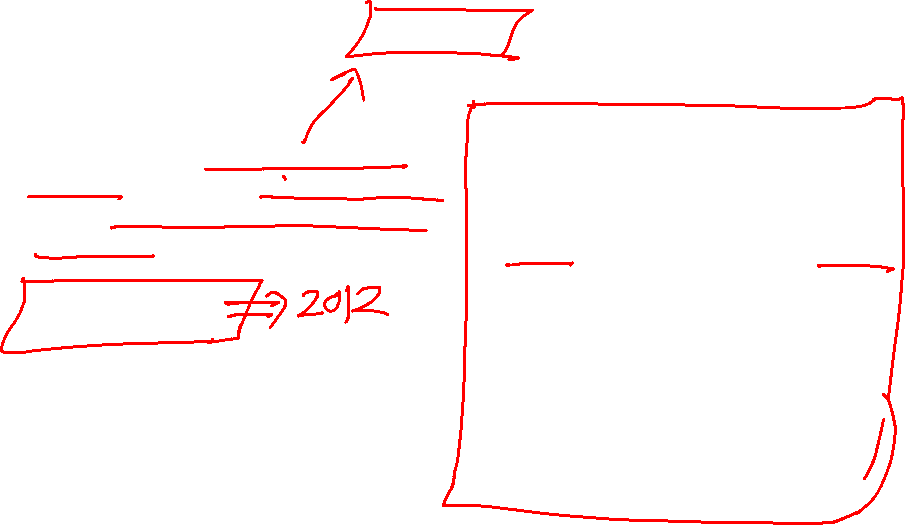 ⇒ 2012